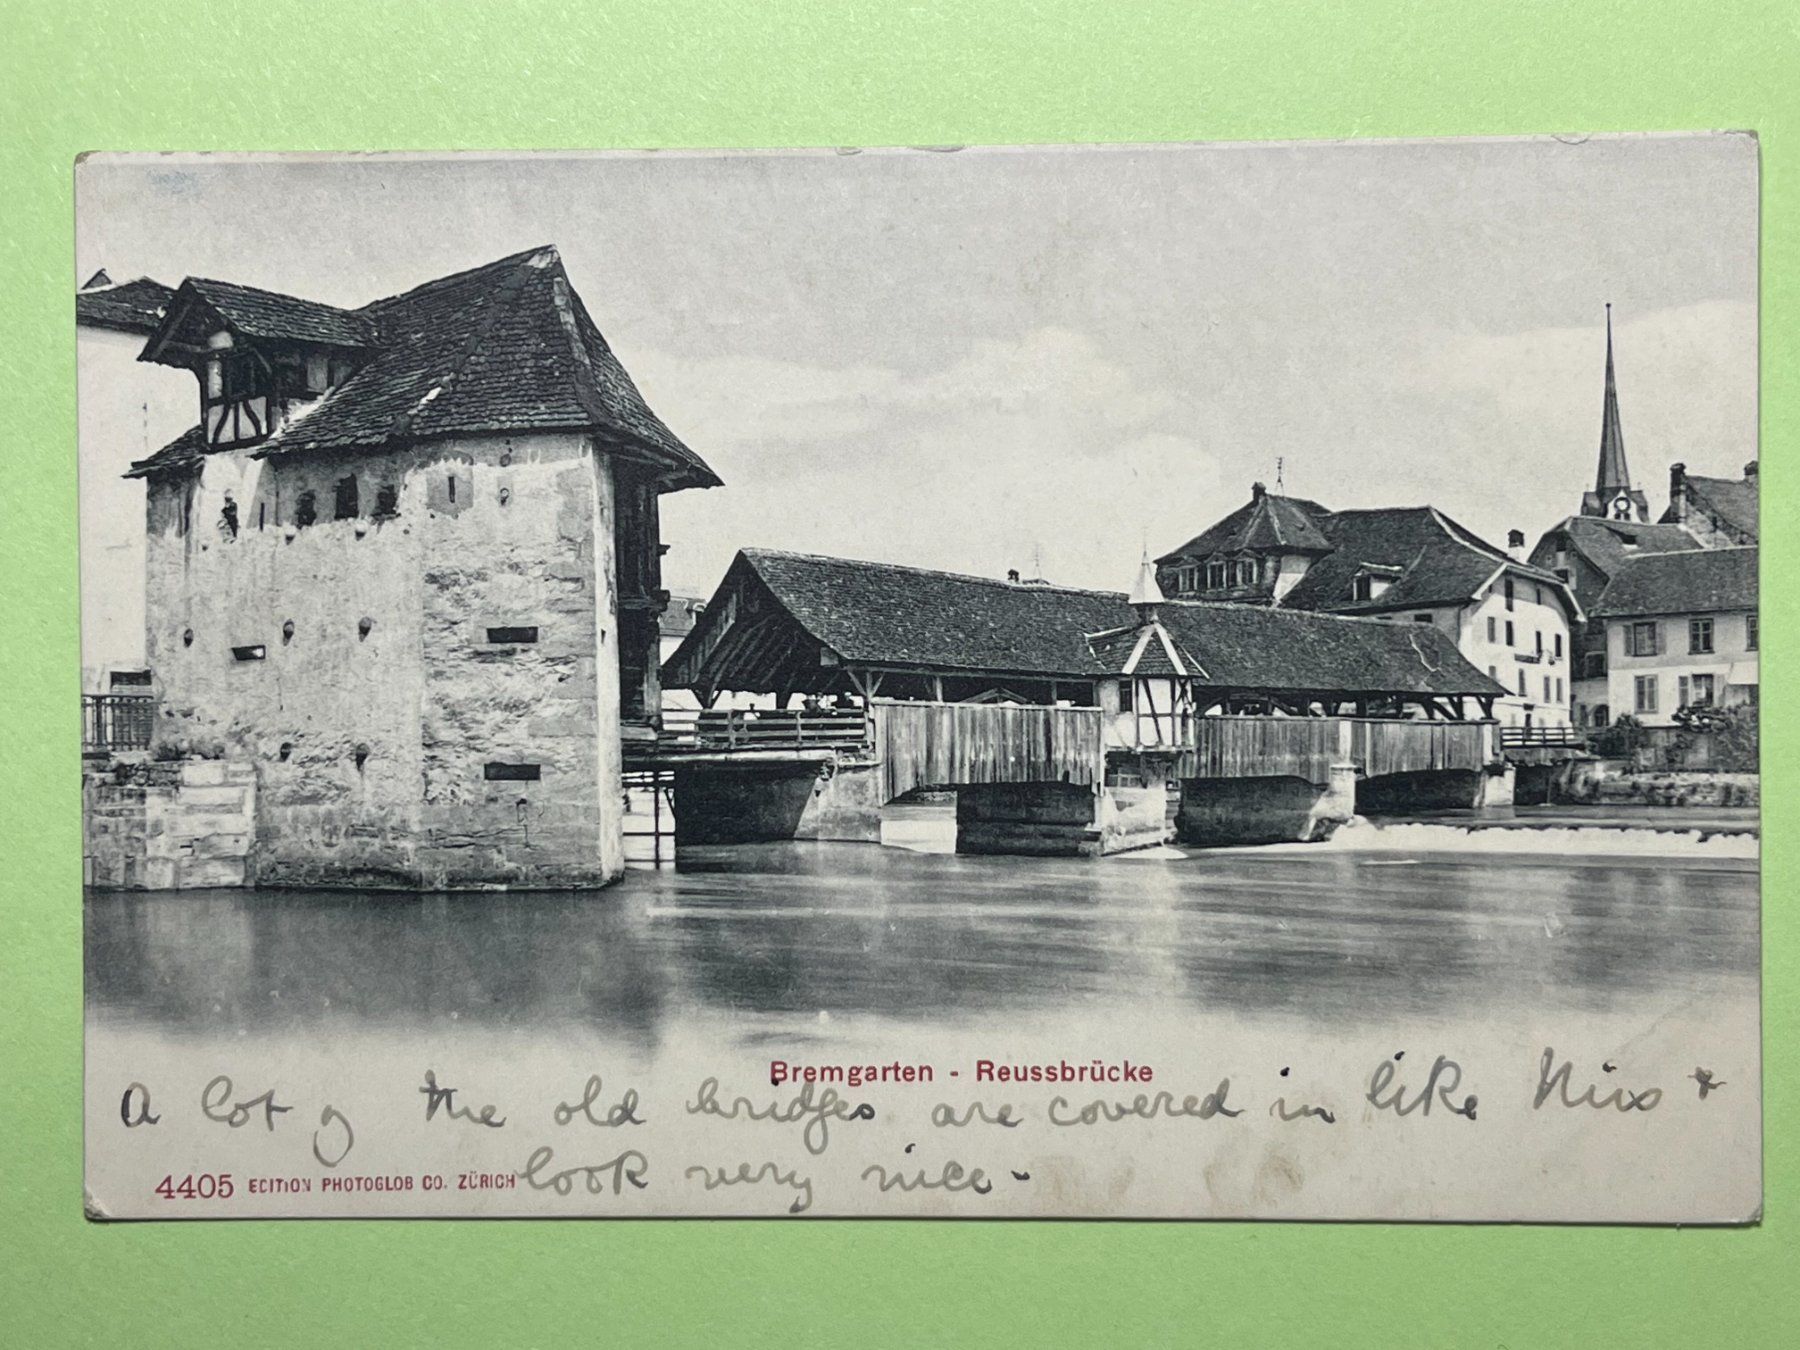 Bremgarten - Reussbrücke
A lot of the old bridges are covered in like this +
look very nice.
4405 EDITION PHOTOGLOB CO. ZÜRICH